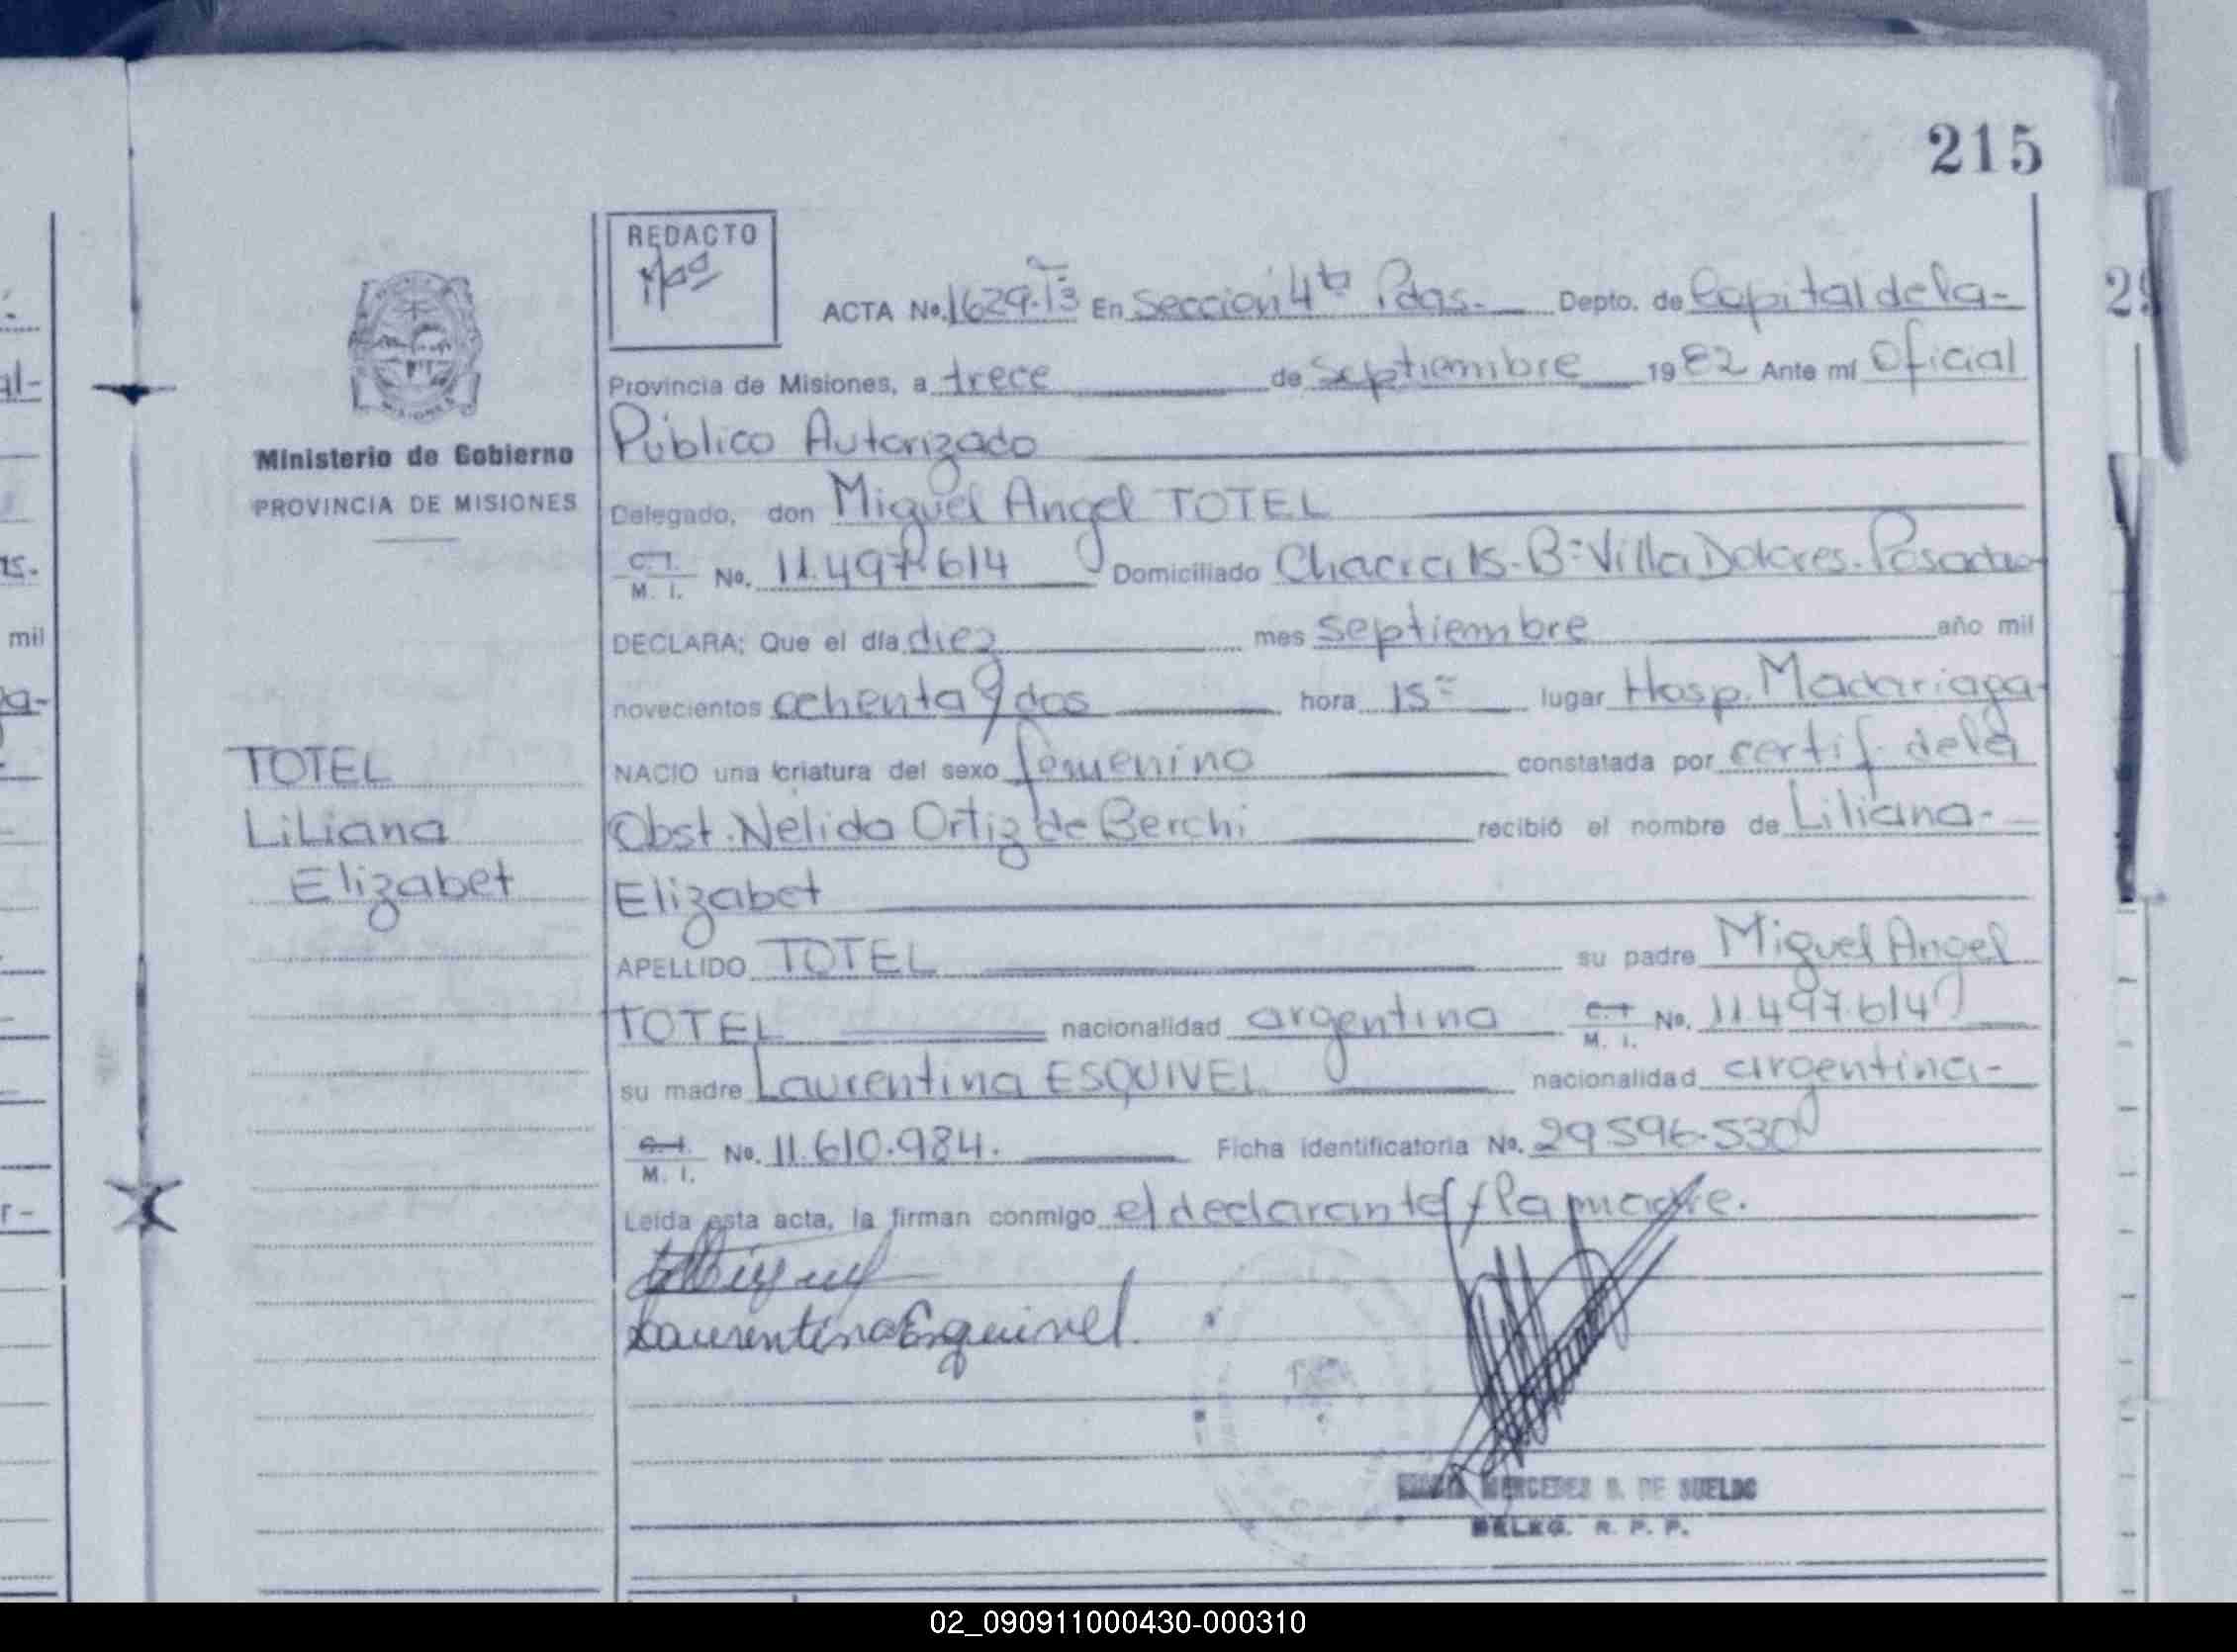 215
REDACTO
ACTA No. 1629-T3 En Sección 4ta Pdas. Depto. de Capital de la-
Provincia de Misiones, a trece de septiembre 1982 Ante mí Oficial
Público Autorizado
Ministerio de Gobierno
PROVINCIA DE MISIONES
Delegado, don Miguel Angel TOTEL
C.I. M. I. No. 11.497.614 Domiciliado Chacra 15-B= Villa Dolores. Posadas
DECLARA: Que el día diez mes septiembre año mil
novecientos ochenta y dos hora 15= lugar Hosp. Madariaga-
NACIO una criatura del sexo femenino constatada por certif. de la
Obst. Nelida Ortiz de Berchi recibió el nombre de Liliana-
Elizabet
TOTEL
Liliana
Elizabet
APELLIDO TOTEL su padre Miguel Angel
TOTEL nacionalidad argentina C.I. M. I. No. 11.497.614
su madre Laurentina ESQUIVEL nacionalidad argentina-
C.I. M. I. No. 11.610.984. Ficha identificatoria No. 29.596.530
Leída esta acta, la firman conmigo el declarante y la madre.
Laurentina Esquivel
MERCEDES DE SUELDO
DELEG. R. P. P.
mil
02_090911000430-000310